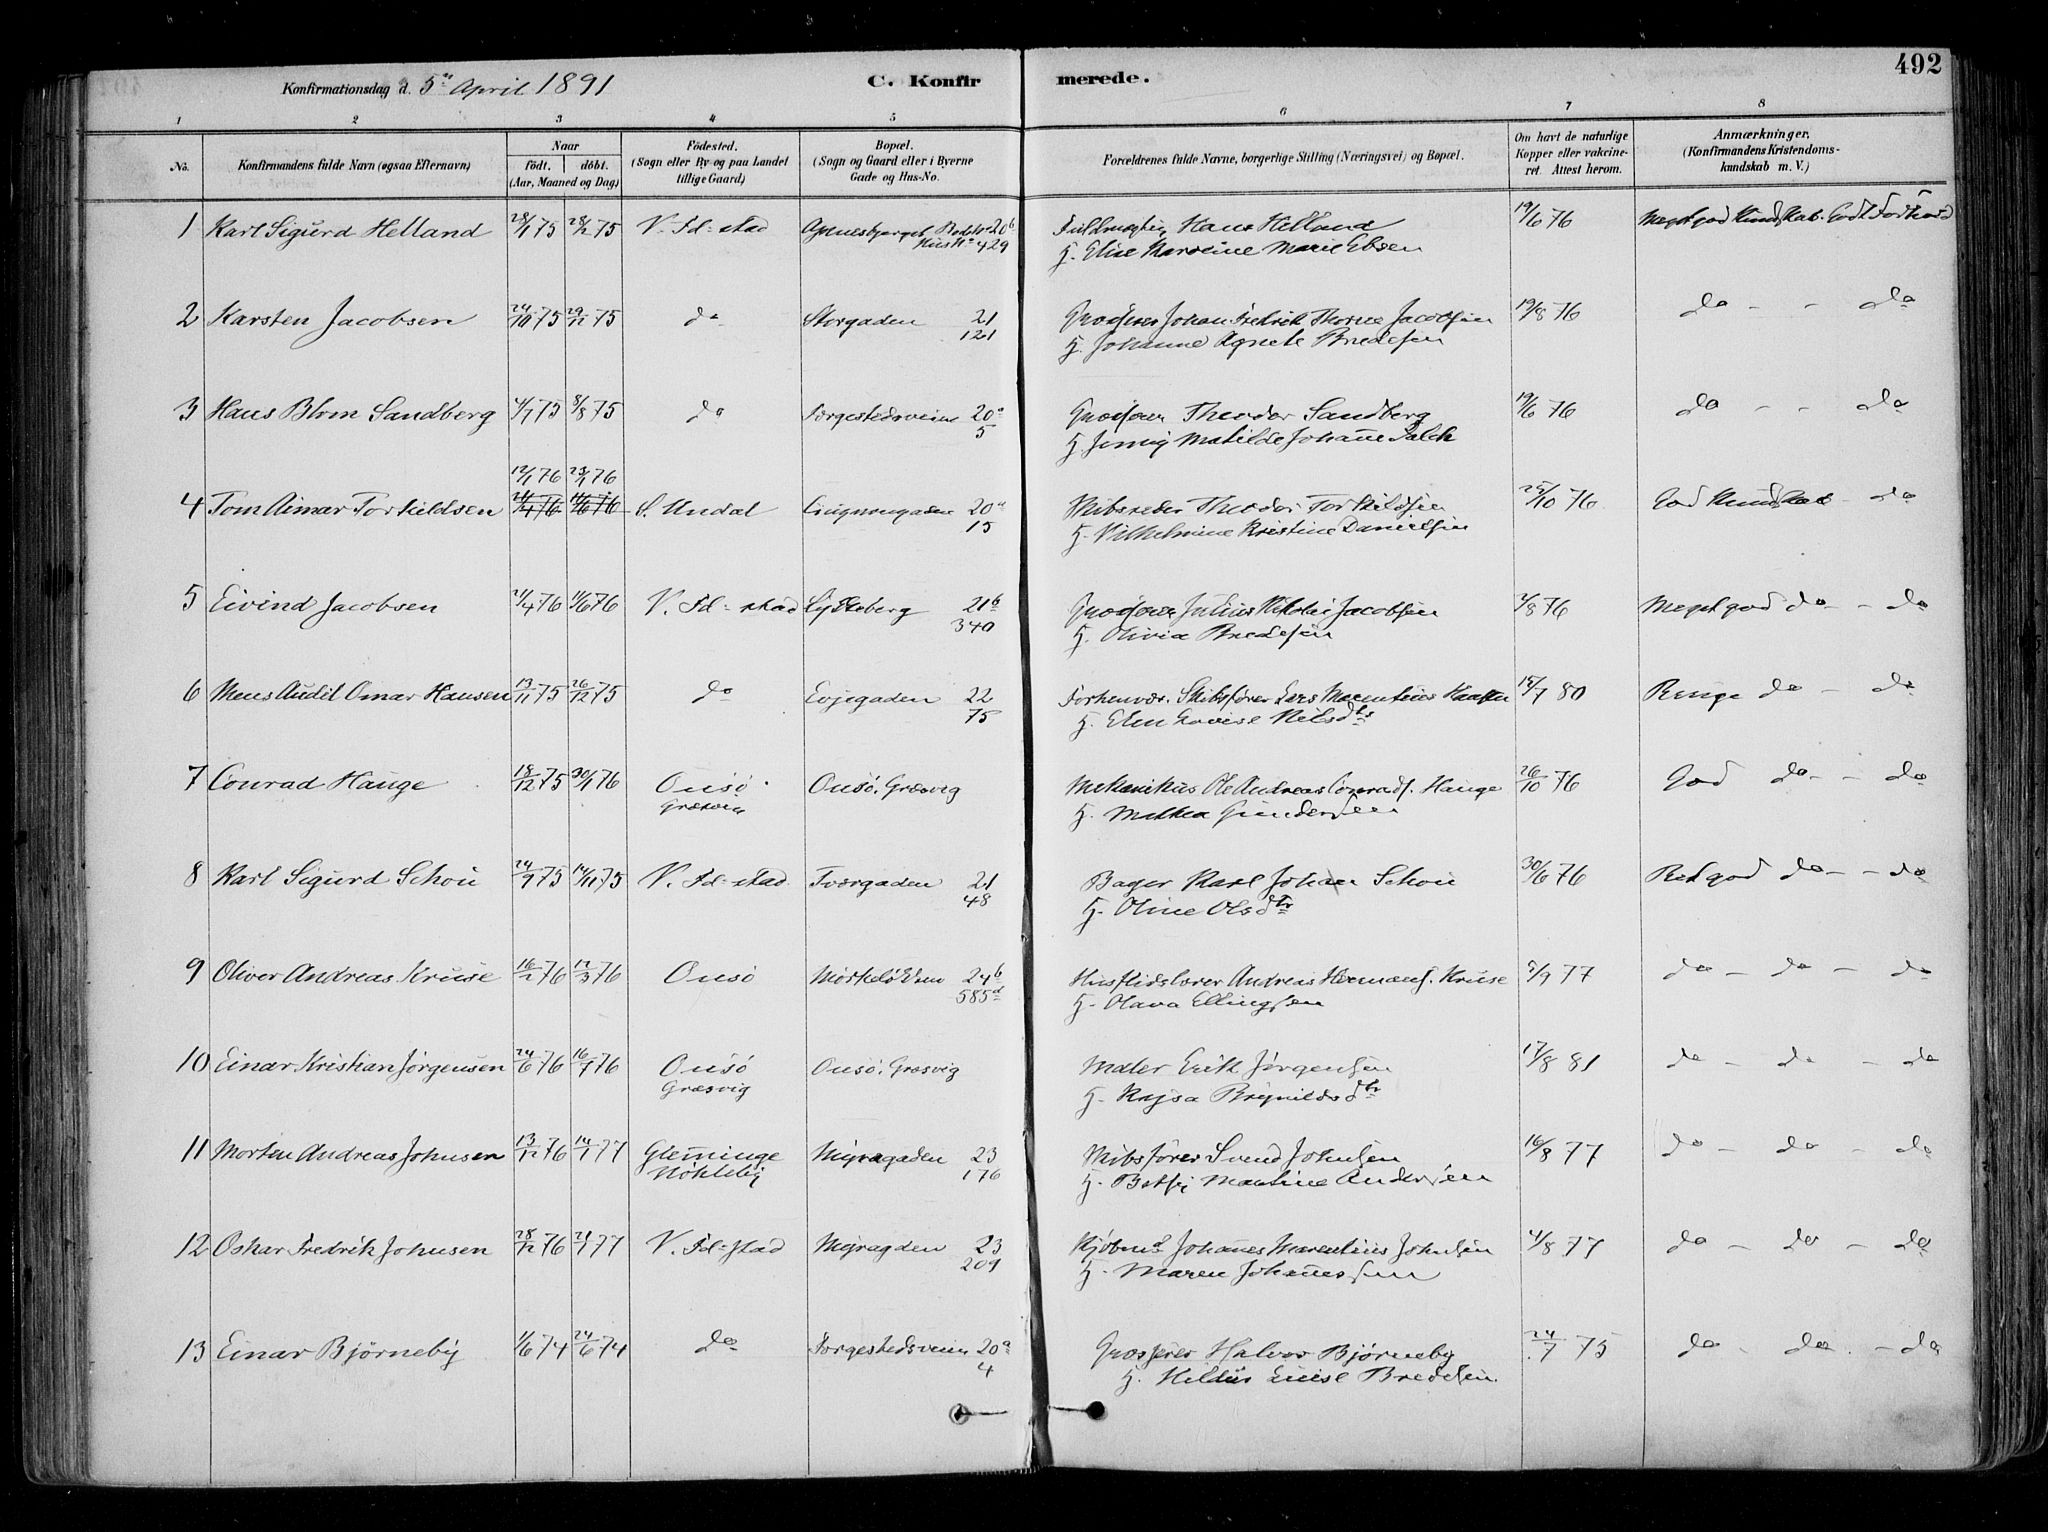 492
Konfirmationsdag d. 5te April 1891 C. Konfirmerede.
1 2 3 4 5 6 7 8
No. Konfirmandens fulde Navn (ogsaa Efternavn) Naar født. døbt. (Aar, Maaned og Dag) Fødested. (Sogn eller By og paa Landet tillige Gaard) Bopæl. (Sogn og Gaard eller i Byerne Gade og Hus-No. Forældrenes fulde Navne, borgerlige Stilling (Næringsvei) og Bopæl. Om havt de naturlige Kopper eller vakcineret. Attest herom. Anmærkninger. (Konfirmandens Kristendomskundskab m. V.)
1 Karl Sigurd Helland 28/1 75 28/2 75 V. Fd-stad 20b Fuldmægtig Hans Helland 19/6 76 Meget god Kundskab. Godt Forhold
429 H. Elise Maroline Marie Ebsen
2 Karsten Jacobsen 24/10 75 29/12 75 do Storgaden 21 Grosserer Johan Fredrik Thorne Jacobsen 19/8 76 do - - do
121 H. Johanne Agnete Bredesen
3 Hans Blom Sandberg 4/7 75 8/8 75 do Færgestedsveien 20a Grosserer Theodor Sandberg 19/6 76 do - - do
5 H. Jenny Matilde Johanne Falck
12/1 76 23/4 76
4 Tom Aimar Torkildsen S. Undal 20a Skibsreder Theodor Torkildsen 25/10 76 God Kundskab - do
15 H. Vilhelmine Kristine Danielsen
5 Eivind Jacobsen 21/4 76 11/6 76 V. Fd-stad Lykkeberg 21b Grosserer Julius Nikolai Jacobsen 2/8 76 Meget god do - - do
340 H. Olivia Bredesen
6 Mens Audil Omar Hansen 13/11 75 26/12 75 do Evjegaden 22 Forhenvær. Skibsfører Lars Marentius Hansen 15/7 80 do - do
75 H. Elen Lovise Nilsdtr
7 Conrad Hauge 18/12 75 30/1 76 Onsø Onsø. Græsvig Mekanikus Ole Andreas Conrads. Hauge 26/10 76 God do - - do
Græsvig H. Mathea Gundersen
8 Karl Sigurd Schou 24/9 75 14/11 75 V. Fd-stad Tværgaden 21 Bager Karl Johan Schou 30/6 76 Ret god do - - do
48 H. Oline Olsdtr
9 Oliver Andreas Kruse 16/2 76 12/3 76 Onsø 24b Husflidslærer Andreas Hermans. Kruse 5/9 77 do - do - do
585d H. Olava Ellingsen
10 Einar Kristian Jørgensen 24/6 76 16/7 76 Onsø Onsø. Græsvig Maler Erik Jørgensen 17/8 81 do - do - do
Græsvig H. Kajsa Brynildsdtr
11 Morten Andreas Johnsen 13/12 76 14/1 77 Glemminge Myragaden 23 Skibsfører Svend Johnsen 16/8 77 do - do - do
Nøkleby 176 H. Betsy Martine Andersen
12 Oskar Fredrik Johnsen 28/12 76 21/1 77 V. Fd-stad Myragden 23 Kjøbmd Johannes Marentius Johnsen 4/8 77 do - do - do
209 H. Maren Johannessen
13 Einar Bjørneby 1/6 74 24/6 74 do Færgestedsveien 20a Grosserer Halvor Bjørneby 24/7 75 do - do - do
4 H. Hildur Luise Bredesen